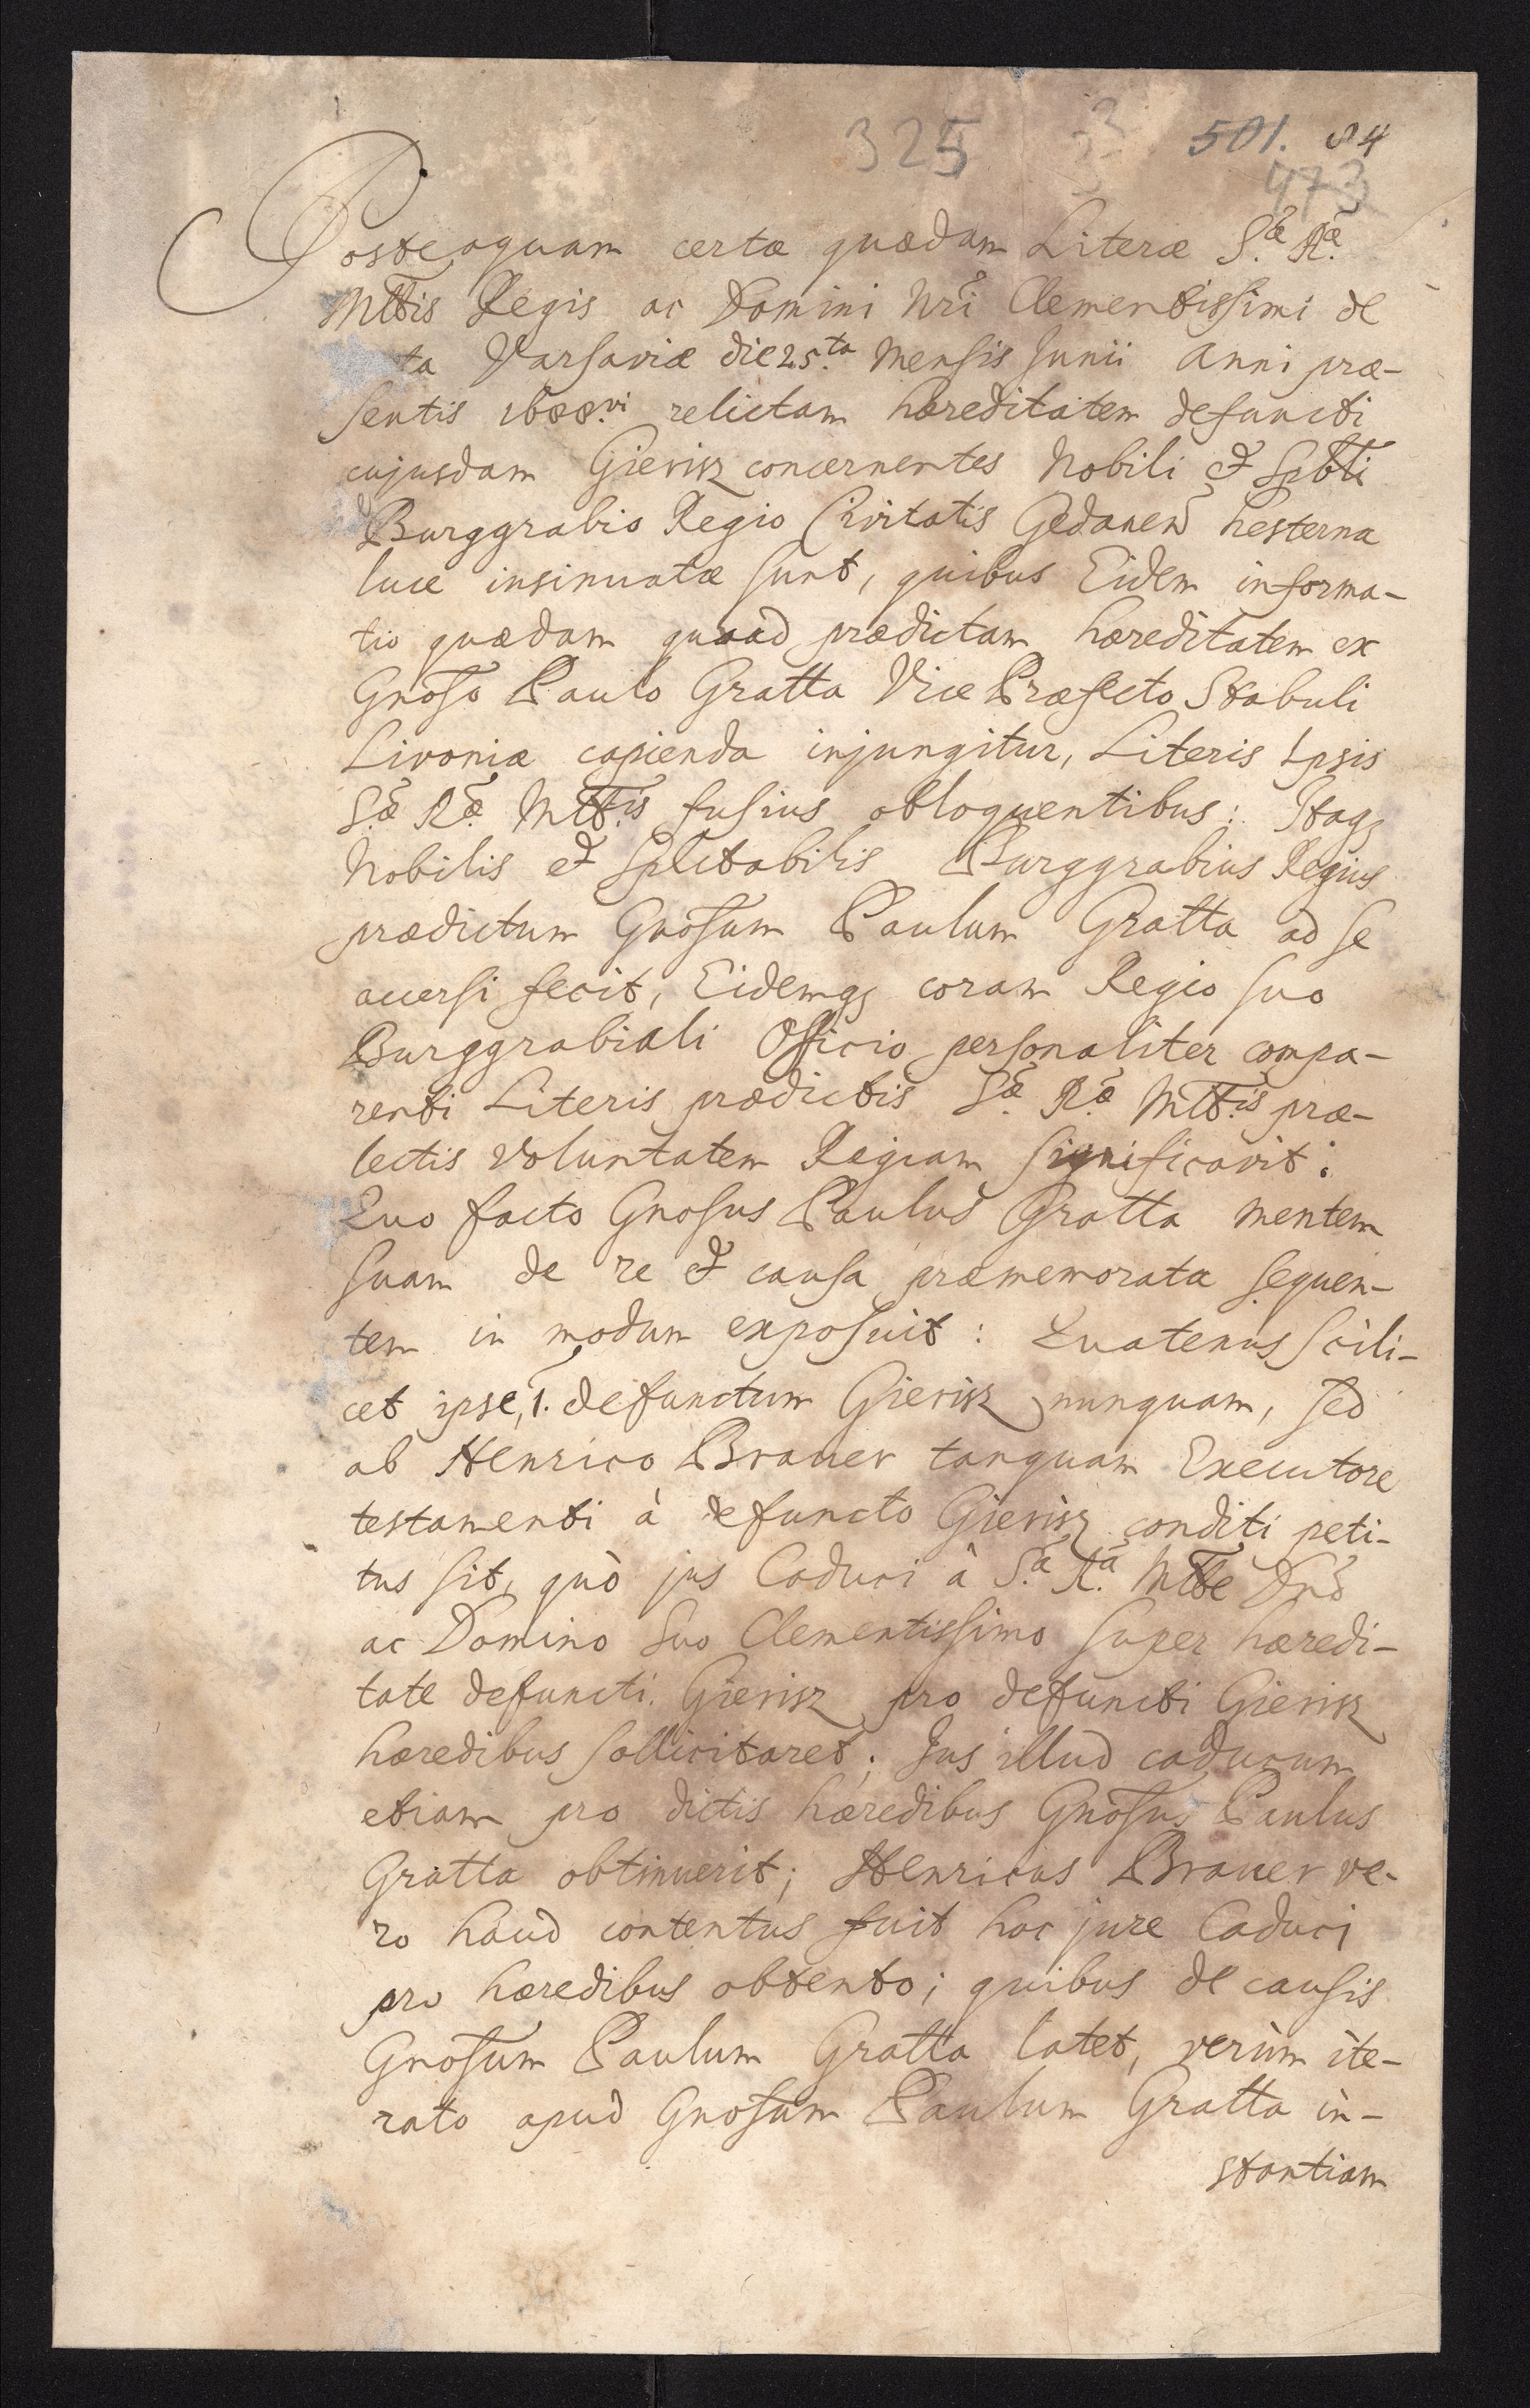 325 501. 84
473
Posteaquam certæ quædam Literæ S.æ R.æ
Mttis Regis ac Domini Nri Clementissimi de
ta Varsaviæ die 25.ta Mensis Junii Anni præ-
sentis relictam hæreditatem defuncti
cujusdam Gierisz concernentes Nobili et Spbti
Burggrabio Regio Civitatis Gedanen hesterna
luce insinuatæ sunt, quibus Eidem informa-
tio quædam quoad prædictam hæreditatem ex
Gnoso Paulo Gratta Vice Præfecto Stabuli
Livoniæ capienda injungitur, Literis Ipsis
S.æ R.æ Mtt.is fusius obloquentibus: Itaq
Nobilis et Spectabilis Burggrabius Regius
prædictum Gnosum Paulum Gratta ad se
accersi fecit, Eidemq coram Regio suo
Burggrabiali Officio personaliter compa-
renti Literis prædictis S.æ R.æ Mtt.is præ-
lectis voluntatem Regiam significavit:
Quo facto Gnosus Paulus Gratta mentem
suam de re et causa præmemorata sequen-
tem in modum exposuit: Quatenus scili-
cet ipse, 1. defunctum Gierisz nunquam, sed
ab Henrico Brauer tanquam Executore
testamenti à defuncto Gierisz conditi peti-
tus sit, quò jus Caduci à S.a R.a Mtte Dnō
ac Domino suo Clementissimo super hæredi-
tate defuncti Gierisz pro defuncti Gierisz
hæredibus sollicitaret; Jus illud caducum
etiam pro dictis hæredibus Gnosus Paulus
Gratta obtinuerit; Henricus Brauer ve-
ro haud contentus fuit hoc jure Caduci
pro hæredibus obtento; quibus de causis
Gnosum Paulum Gratta latet, verùm ite-
rato apud Gnosum Paulum Gratta in-
stantiam